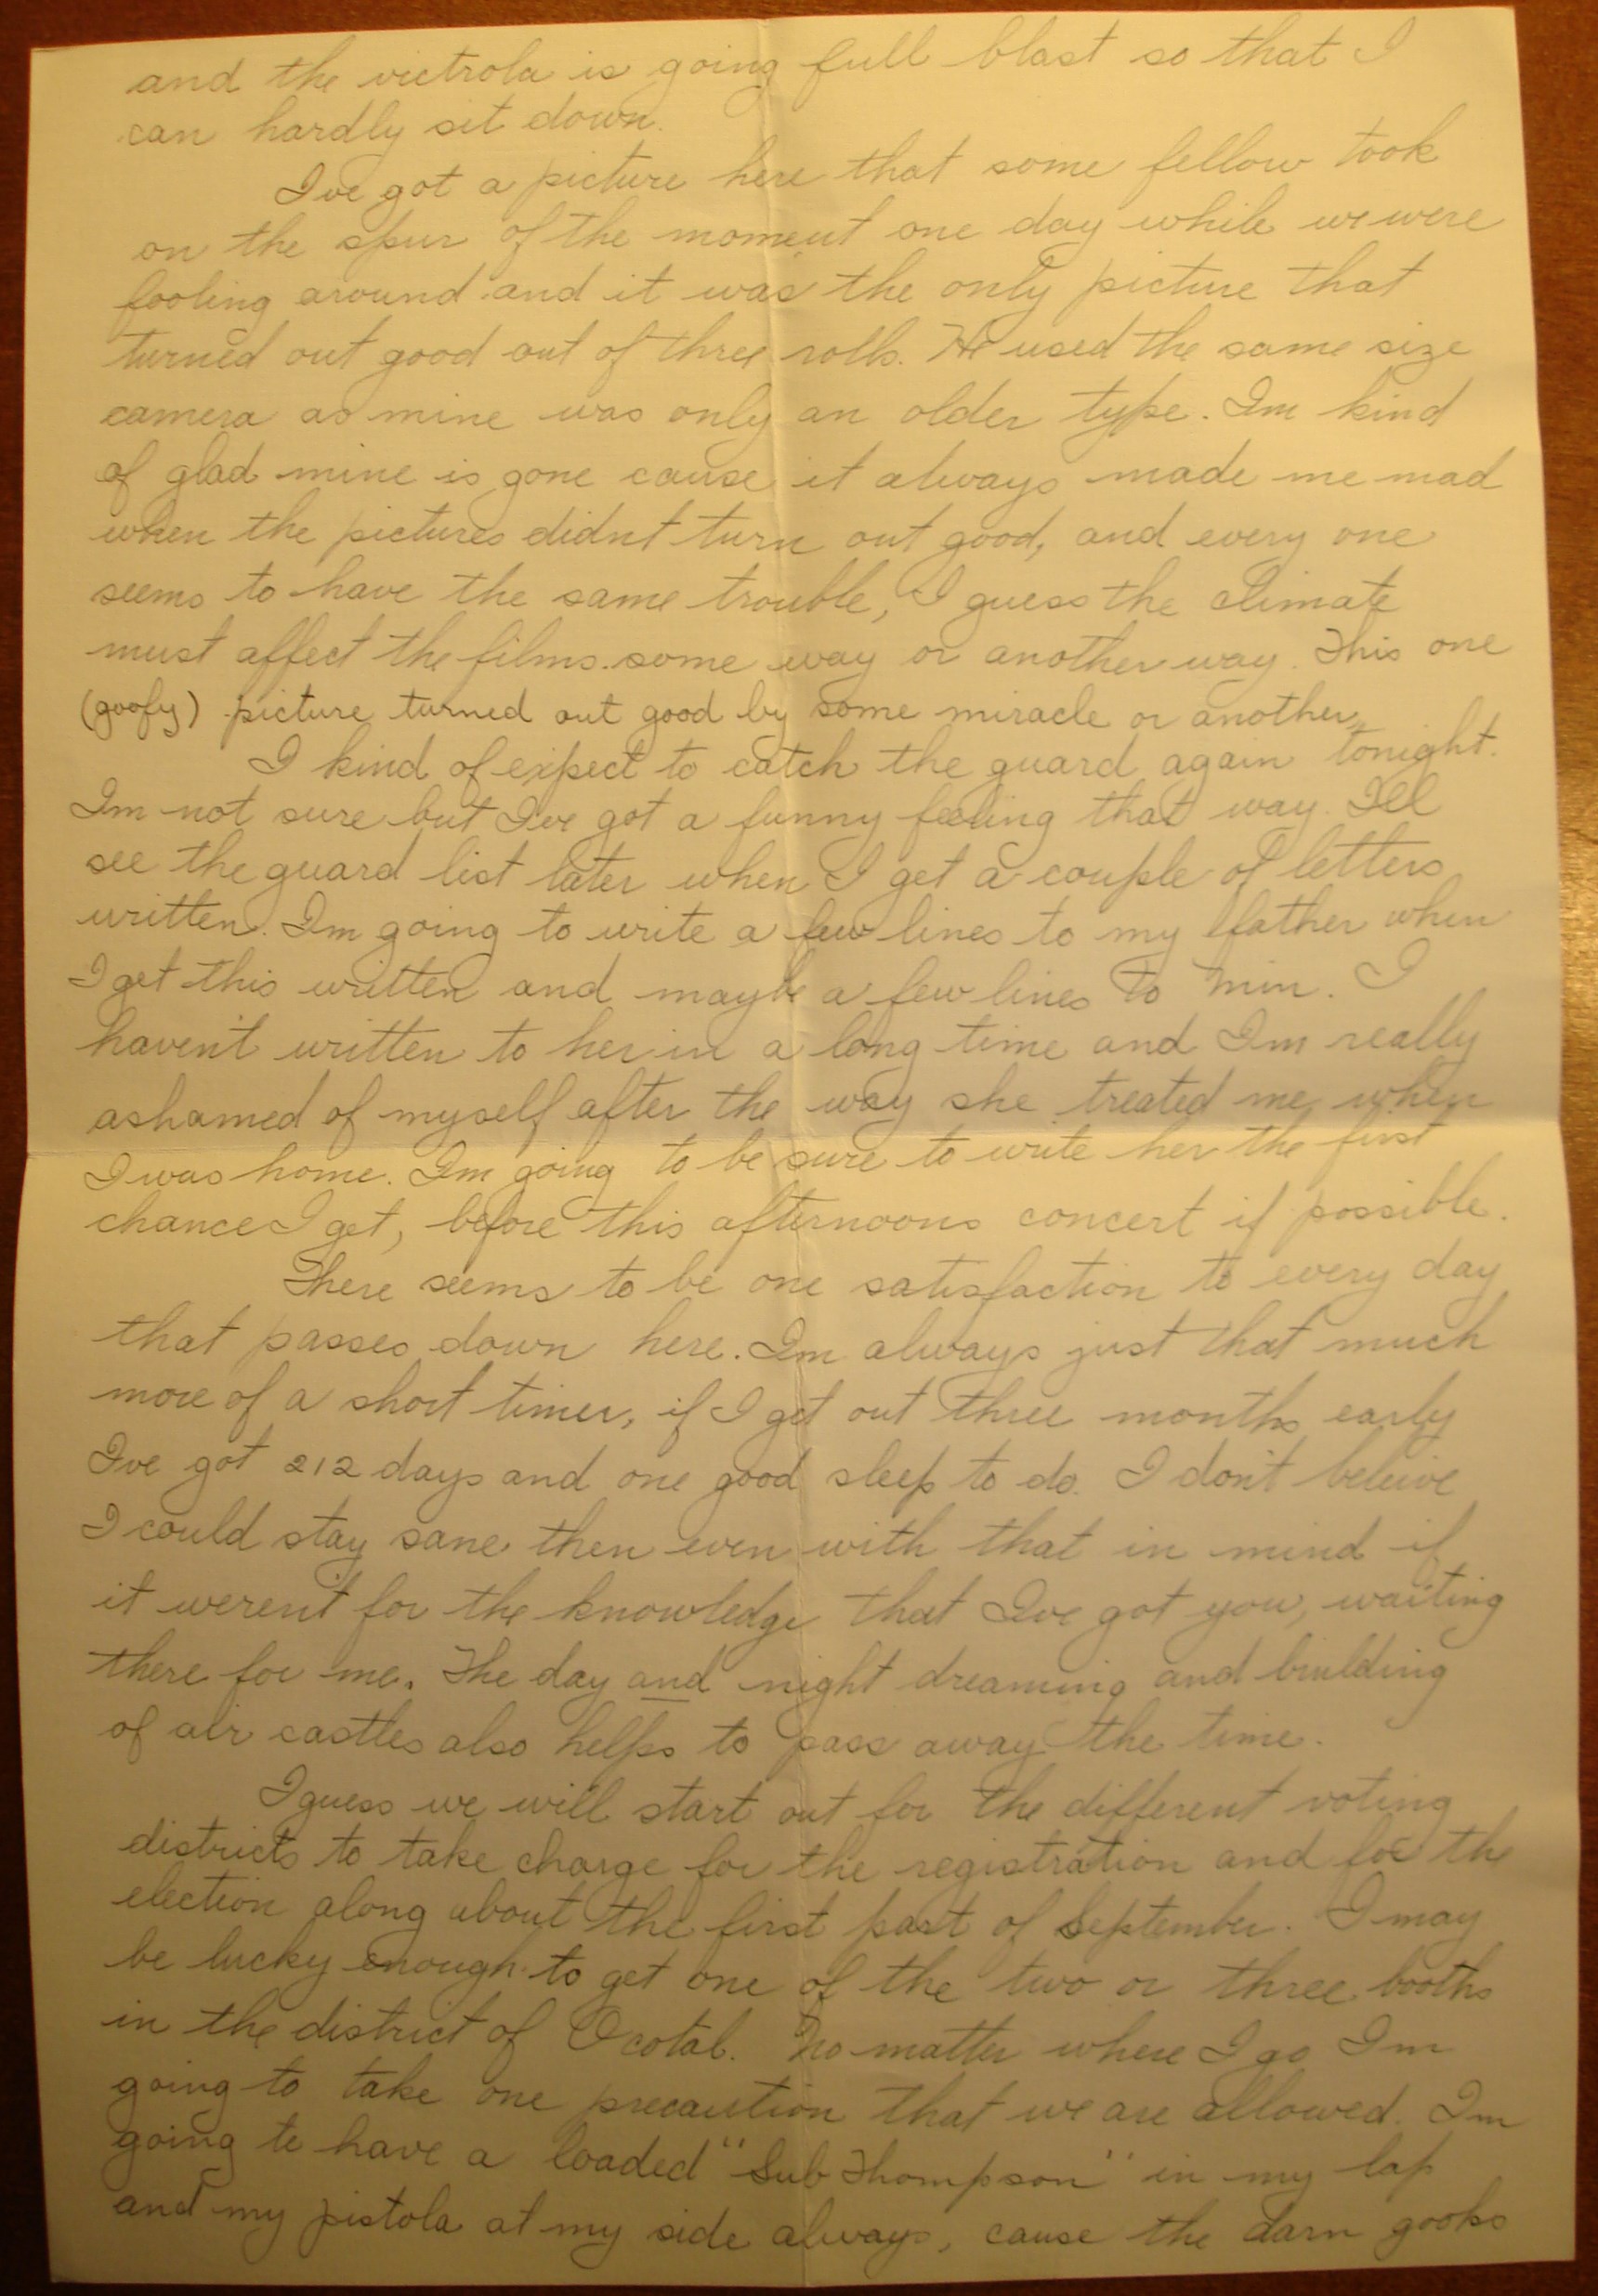 and the victrola is going full blast so that I
can hardly sit down.
Ive got a picture here that some fellow took
on the spur of the moment one day while we were
fooling around and it was the only picture that
turned out good out of three rolls. He used the same size
camera as mine was only an older type. Im kind
of glad mine is gone cause it always made me mad
when the pictures didnt turn out good, and every one
seems to have the same trouble, I guess the climate
must affect the films some way or another way. This one
(goofy) picture turned out good by some miracle or another.
I kind of expect to catch the guard again tonight.
Im not sure but Ive got a funny feeling that way. Ill
see the guard list later when I get a couple of letters
written. Im going to write a few lines to my father when
I get this written and maybe a few lines to Mim. I
haven't written to her in a long time and Im really
ashamed of myself after the way she treated me when
I was home. Im going to be sure to write her the first
chance I get, before this afternoons concert if possible.
There seems to be one satisfaction to every day
that passes down here. Im always just that much
more of a short timer, if I get out three months early
Ive got 212 days and one good sleep to do. I don't beleive
I could stay sane then even with that in mind if
it weren't for the knowledge that Ive got you, waiting
there for me. The day and night dreaming and building
of air castles also helps to pass away the time.
I guess we will start out for the different voting
districts to take charge for the registration and for the
election along about the first part of September. I may
be lucky enough to get one of the two or three booths
in the district of Ocotal. No matter where I go Im
going to take one precaution that we are allowed. Im
going to have a loaded "Sub Thompson" in my lap
and my pistola at my side always, cause the darn gooks